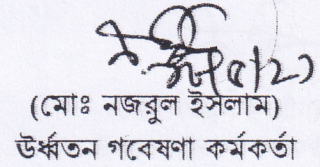 (মোঃ নজরুল ইসলাম)
উর্ধ্বতন গবেষণা কর্মকর্তা